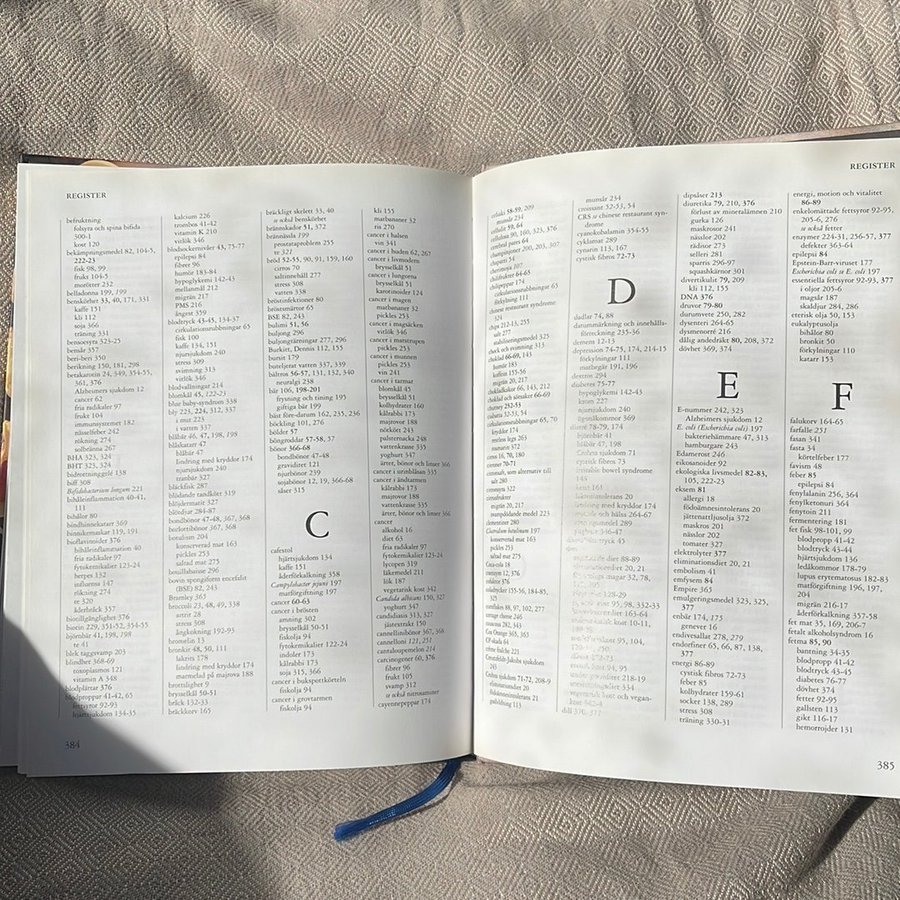 REGISTER
befruktning
folsyra och spina bifida
300-1
kost 120
bekämpningsmedel 82, 104-5,
222-23
fisk 98, 99
frukt 104-5
morötter 232
belladonna 199, 199
bensköthet 33, 40, 171, 331
kaffe 151
kli 112
soja 366
träning 331
bensoesyra 323-25
benså 357
beri-beri 350
berikning 150, 181, 298
betakaroten 24, 349, 354-55,
361, 376
Alzheimers sjukdom 12
cancer 62
fria radikaler 97
frukt 104
immunsystemet 182
nässelfeber 242
rökning 274
solbränna 267
BHA 323, 324
BHT 323, 324
bidrottninggelé 138
biff 308
Bifidobacterium longum 221
bihåleinflammation 40-41,
111
bihålor 80
bindhinnekatarr 369
binnikemaskar 119, 191
bioflavinoider 376
bihåleinflammation 40
fria radikaler 97
fytokemikalier 123-24
herpes 132
influensa 147
rökning 274
te 320
åderbråck 357
biotillgänglighet 376
biotin 229, 351-52, 354-55
björnbär 41, 198, 198
te 41
blek taggsvamp 203
blindhet 368-69
toxoplasmos 121
vitamin A 348
blodplättar 376
blodproppar 41-42, 65
fettsyror 92-93
hjärtsjukdom 134-35
kalcium 226
trombos 41-42
vitamin K 210
vitlök 346
blodsockernivåer 43, 75-77
epilepsi 84
fibrer 96
humör 183-84
hypoglykemi 142-43
mellanmål 212
migrän 217
PMS 216
ångest 359
blodtryck 43-45, 134-37
cirkulationsrubbningar 65
fisk 100
kaffe 134, 151
njursjukdom 240
stress 309
svimning 313
vitlök 346
blodvallningar 214
blomkål 45, 122-23
blue baby-syndrom 338
bly 223, 224, 312, 337
i mat 223
i vatten 337
blåbär 46, 47, 198, 198
blåskatarr 47
blåbär 47
lindring med kryddor 174
njursjukdom 240
tranbär 327
bläckfisk 287
blödande tandkött 319
blöjdermatit 327
blötdjur 284-87
bondbönor 47-48, 367, 368
borlottibönor 367, 368
botulism 204
konserverad mat 163
pickles 253
saltad mat 275
bouillabaisse 296
bovin spongiform encefalit
(BSE) 82, 243
Bramley 363
broccoli 23, 48, 49, 338
artrit 28
stress 308
ångkokning 192-93
bromelin 13
bronkit 48, 50, 111
lakrits 178
lindring med kryddor 174
marmelad på majrova 188
brottlighet 9
brysselkål 50-51
bråck 132-33
bräckkorv 165
bräckligt skelett 33, 40
se också bensköthet
brännskador 51, 372
brännässla 199
prostataproblem 255
te 321
bröd 52-55, 90, 91, 159, 160
cirros 70
saltinnehåll 277
stress 308
vatten 338
bröstinfektioner 80
bröstsmärtor 65
BSE 82, 243
bulimi 51, 56
buljong 296
buljongtärningar 277, 296
Burkitt, Dennis 112, 155
bursit 179
buteljerat vatten 337, 339
bältros 56-57, 131, 132, 340
neuralgi 238
bär 106, 198-201
frysning och tining 195
giftiga bär 199
bäst före-datum 162, 235, 236
böckling 101, 296
bölder 57
böngroddar 57-58, 37
bönor 366-68
bondbönor 47-48
graviditet 121
njurbönor 239
sojabönor 12, 19, 366-68
såser 315
C
cafestol
hjärtsjukdom 134
kaffe 151
åderförkalkning 358
Campylobacter jejuni 197
matförgiftning 197
cancer 60-63
cancer i brösten
amning 302
brysselkål 50-51
fiskolja 94
fytokemikalier 122-24
indoler 173
kålrabbi 173
soja 315, 366
cancer i bukspottkörteln
fiskolja 94
cancer i grovtarmen
fiskolja 94
kli 155
matbananer 32
ris 270
cancer i halsen
vin 341
cancer i huden 62, 267
cancer i livmodern
brysselkål 51
cancer i lungorna
brysselkål 51
karotinoider 124
cancer i magen
matbananer 32
pickles 253
cancer i magsäcken
vitlök 346
cancer i matstrupen
pickles 253
cancer i munnen
pickles 253
vin 241
cancer i tarmar
blomkål 45
brysselkål 51
kolhydrater 160
kålrabbi 173
majrovor 188
nötkött 243
palsternacka 248
vattenkrasse 335
yoghurt 347
ärter, bönor och linser 366
cancer i urinblåsan 335
cancer i ändtarmen
kålrabbi 173
majrovor 188
vattenkrasse 335
ärter, bönor och linser 366
cancer
alkohol 16
diet 63
fria radikaler 97
fytokemikalier 123-24
lycopen 319
läkermedel 211
lök 187
vegetarisk kost 342
Candida albicans 150, 327
yoghurt 347
candidiasis 313, 327
jästextrakt 150
cannellinibönor 367, 368
cannelloni 121, 251
cantaloupemelon 214
carcinogener 60, 376
fibrer 96
frukt 105
svamp 312
se också nitrosaminer
cayennepeppar 174
384
celiaki 58-59, 209
mumsår 234
cellulit 59, 64
cellulosa 90, 160, 323, 376
cerebral pares 64
championjoner 200, 203, 307
chapatti 54
cherimoya 107
chilipeppar 174
cirkulationsrubbningar 63
förkylning 111
chinese restaurant syndrome
324
chips 212-13, 255
salt 277
stabiliseringsmedel 325
check och svimning 313
choklad 66-69, 143
humör 183
koffein 155-56
migrän 20, 217
chokladkakor 66, 143, 212
choklad och sötsaker 66-69
chutney 252-53
ciabatta 52-53, 54
cirkulationsrubbningar 65, 70
kryddor 174
restless legs 263
mumsår 372
cirros 16, 70, 180
citroner 70-71
citronsaft, som alternativ till
salt 280
citronsyra 322
citrusfrukter
migrän 20, 217
svampdödande medel 223
clementiner 280
Clostridium botulinum 197
konserverad mat 163
pickles 253
saltad mat 275
Coca-cola 18
coenzym 12, 376
kolin 376
colesterol 155-56, 184-85,
376
cornflakes 88, 97, 102, 277
cottage cheese 246
couscous 282, 343
Cox Orange 363, 363
CP-skada 64
crème fraîche 221
Creutzfeldt-Jakobs sjukdom
243
Crohns sjukdom 71-72, 208-9
elimineringsdiet 20
födoämnesintolerans 21
gasbildning 113
mumsår 234
croissant 52-53, 54
CRS se chinese restaurant syn-
drome
cyanokobalamin 354-55
cyklamat 289
cynarin 113, 167
cystisk fibros 72-73
D
dadlar 74, 88
datummärkning och innehålls-
förteckning 235-36
demens 12-13
depression 74-75, 174, 214-15
förkylningar 111
matbegär 191, 196
dextros 294
diabetes 75-77
hypoglykemi 142-43
krom 227
njursjukdom 240
ögonsjukdomar 369
diarré 78-79, 174
björnbär 41
blåbär 47, 198
Crohns sjukdom 71
cystisk fibros 73
irritable bowel syndrome
145
dipsåser 213
diuretika 79, 210, 376
förlust av mineralämnen 210
gurka 126
maskrosor 241
nässlor 202
rädisor 273
selleri 281
sparris 296-97
squashkärnor 301
divertikulit 79, 209
kli 112, 155
DNA 376
druvor 79-80
durumvete 250, 282
dysenteri 264-65
dysmenorré 216
dålig andedräkt 80, 208, 372
dövhet 369, 374
E
E-nummer 242, 323
Alzheimers sjukdom 12
E. coli (Escherichia coli) 197
bakteriehämmare 47, 313
hamburgare 243
Edamerost 246
eikosanoider 92
ekologiska livsmedel 82-83,
105, 222-23
eksem 81
allergi 18
födoämnesintolerans 20
jättenattljusolja 372
maskros 201
nässlor 202
tomater 327
elektrolyter 377
elimineringsdiet 20, 21
embolism 41
emfysem 84
Empire 363
emulgeringsmedel 323, 325,
377
enbär 174, 175
genever 16
endivesallat 278, 279
endorfiner 65, 66, 87, 138,
377
energi 86-89
cystisk fibros 72-73
feber 85
kolhydrater 159-61
socker 138, 289
stress 308
träning 330-31
REGISTER
energi, motion och vitalitet
86-89
enkelomättade fettsyror 92-95,
205-6, 276
se också fetter
enzymer 224-31, 256-57, 377
defekter 363-64
epilepsi 84
Epstein-Barr-viruset 177
Escherichia coli se E. coli 197
essentiella fettsyror 92-93, 377
i oljor 205-6
magsår 187
skaldjur 284, 286
eterisk olja 50, 153
eukalyptusolja
bihålor 80
bronkit 50
förkylningar 110
katarr 153
F
falukorv 164-65
farfalle 251
fasan 341
fasta 34
körtelfeber 177
favism 48
feber 85
epilepsi 84
fenylalanin 256, 364
fenylketonuri 364
fenytoin 211
fermentering 181
fet fisk 98-101, 99
blodpropp 41-42
blodtryck 43-44
hjärtsjukdom 136
ledåkommor 178-79
lupus erytematosus 182-83
matförgiftning 196, 197,
204
migrän 216-17
åderförkalkning 357-58
fet mat 35, 169, 206-7
fetalt alkoholsyndrom 16
fetma 85, 90
bantning 34-35
blodpropp 41-42
blodtryck 43-45
diabetes 76-77
dövhet 374
fetter 92-95
gallsten 113
gikt 116-17
hemorrojder 131
385